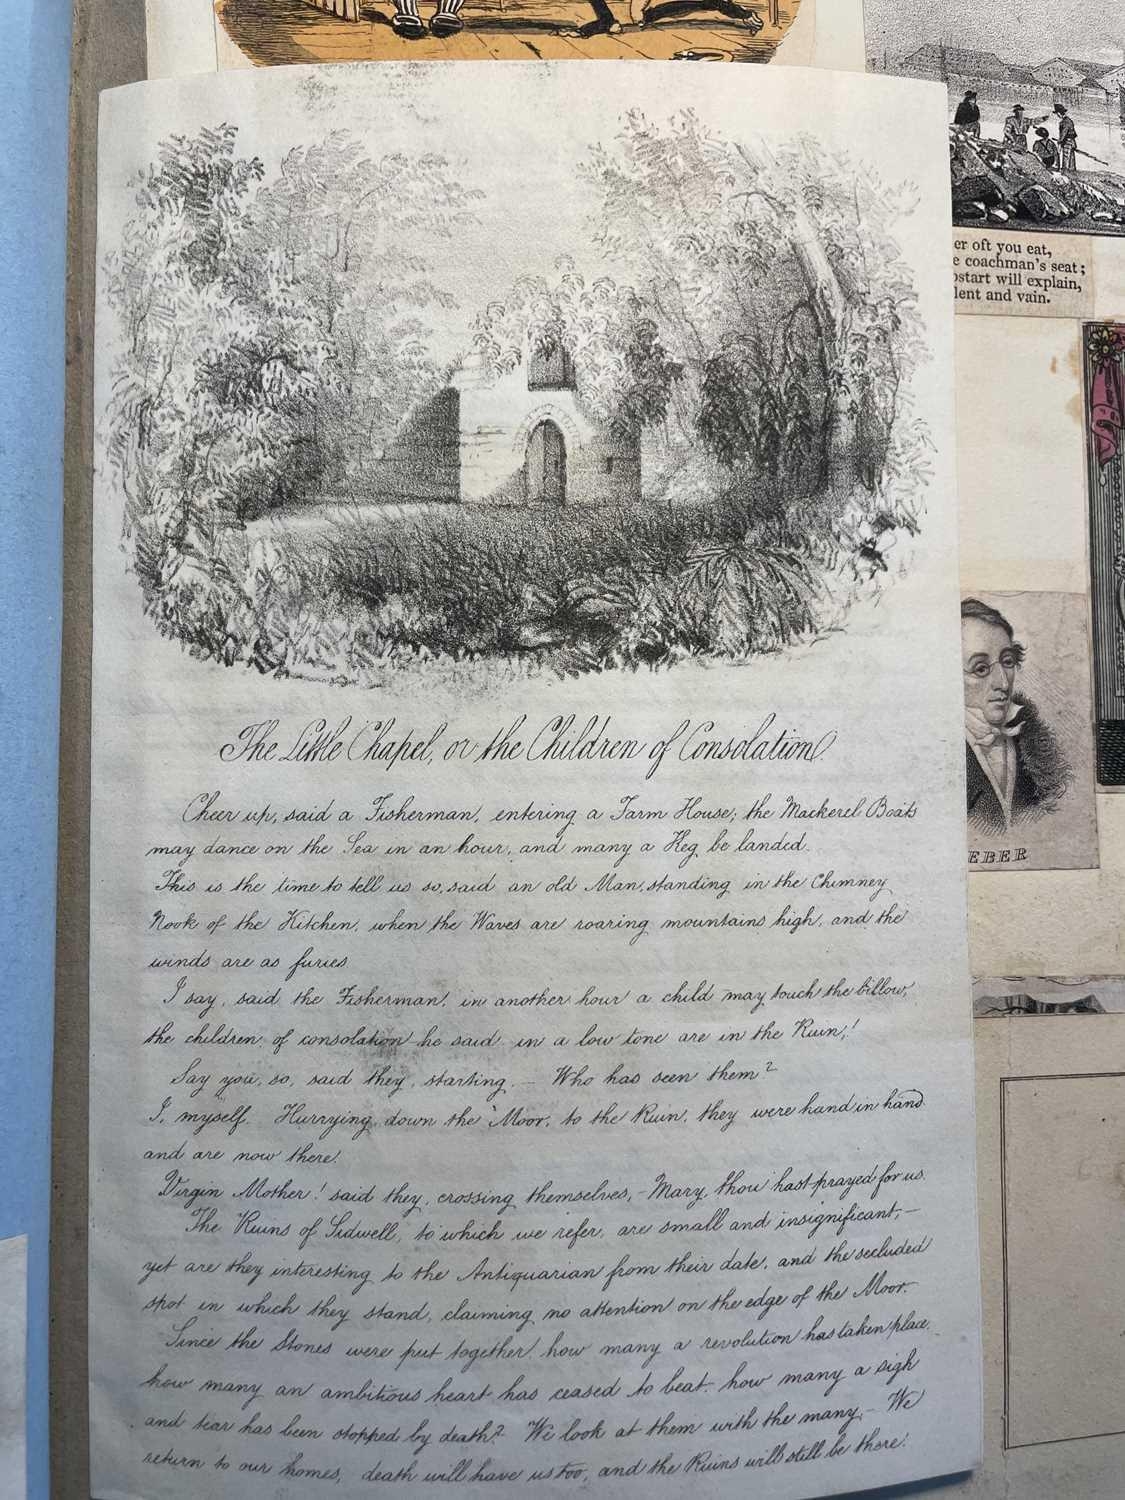 er oft you eat,
e coachman's seat;
pstart will explain,
lent and vain.
EBER
The Little Chapel, or the Children of Consolation.
Cheer up, said a Fisherman, entering a Farm House; the Mackerel Boats
may dance on the Sea in an hour, and many a Keg be landed.
This is the time to tell us so, said an old Man, standing in the Chimney
Nook of the Kitchen, when the Waves are roaring mountains high, and the
winds are as furies
I say, said the Fisherman, in another hour a child may touch the billow,
the children of consolation he said in a low tone are in the Ruin!
Say you so, said they, starting. — Who has seen them?
I, myself. Hurrying down the Moor, to the Ruin, they were hand in hand
and are now there.
Virgin Mother! said they, crossing themselves, — Mary, thou hast prayed for us.
The Ruins of Sidwell, to which we refer, are small and insignificant, —
yet are they interesting to the Antiquarian from their date, and the secluded
spot in which they stand, claiming no attention on the edge of the Moor.
Since the Stones were put together, how many a revolution has taken place,
how many an ambitious heart has ceased to beat, how many a sigh
and tear has been stopped by death? We look at them with the many, — We
return to our homes, death will have us too, and the Ruins will still be there.